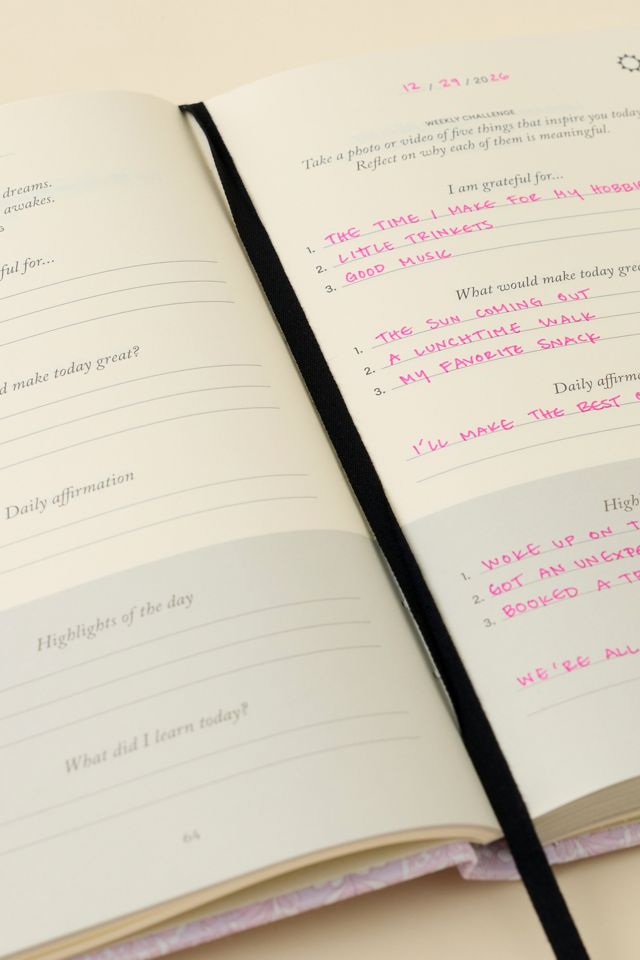 dreams.
awakes.
ful for...
d make today great?
Daily affirmation
Highlights of the day
What did I learn today?
64
12 / 29 / 2026
WEEKLY CHALLENGE
Take a photo or video of five things that inspire you today
Reflect on why each of them is meaningful.
I am grateful for...
1. THE TIME I MAKE FOR MY HOBBIE
2. LITTLE TRINKETS
3. GOOD MUSIC
What would make today grea
1. THE SUN COMING OUT
2. A LUNCHTIME WALK
3. MY FAVORITE SNACK
Daily affirma
I'LL MAKE THE BEST
High
1. WOKE UP ON T
2. GOT AN UNEXPE
3. BOOKED A TR
WE'RE ALL